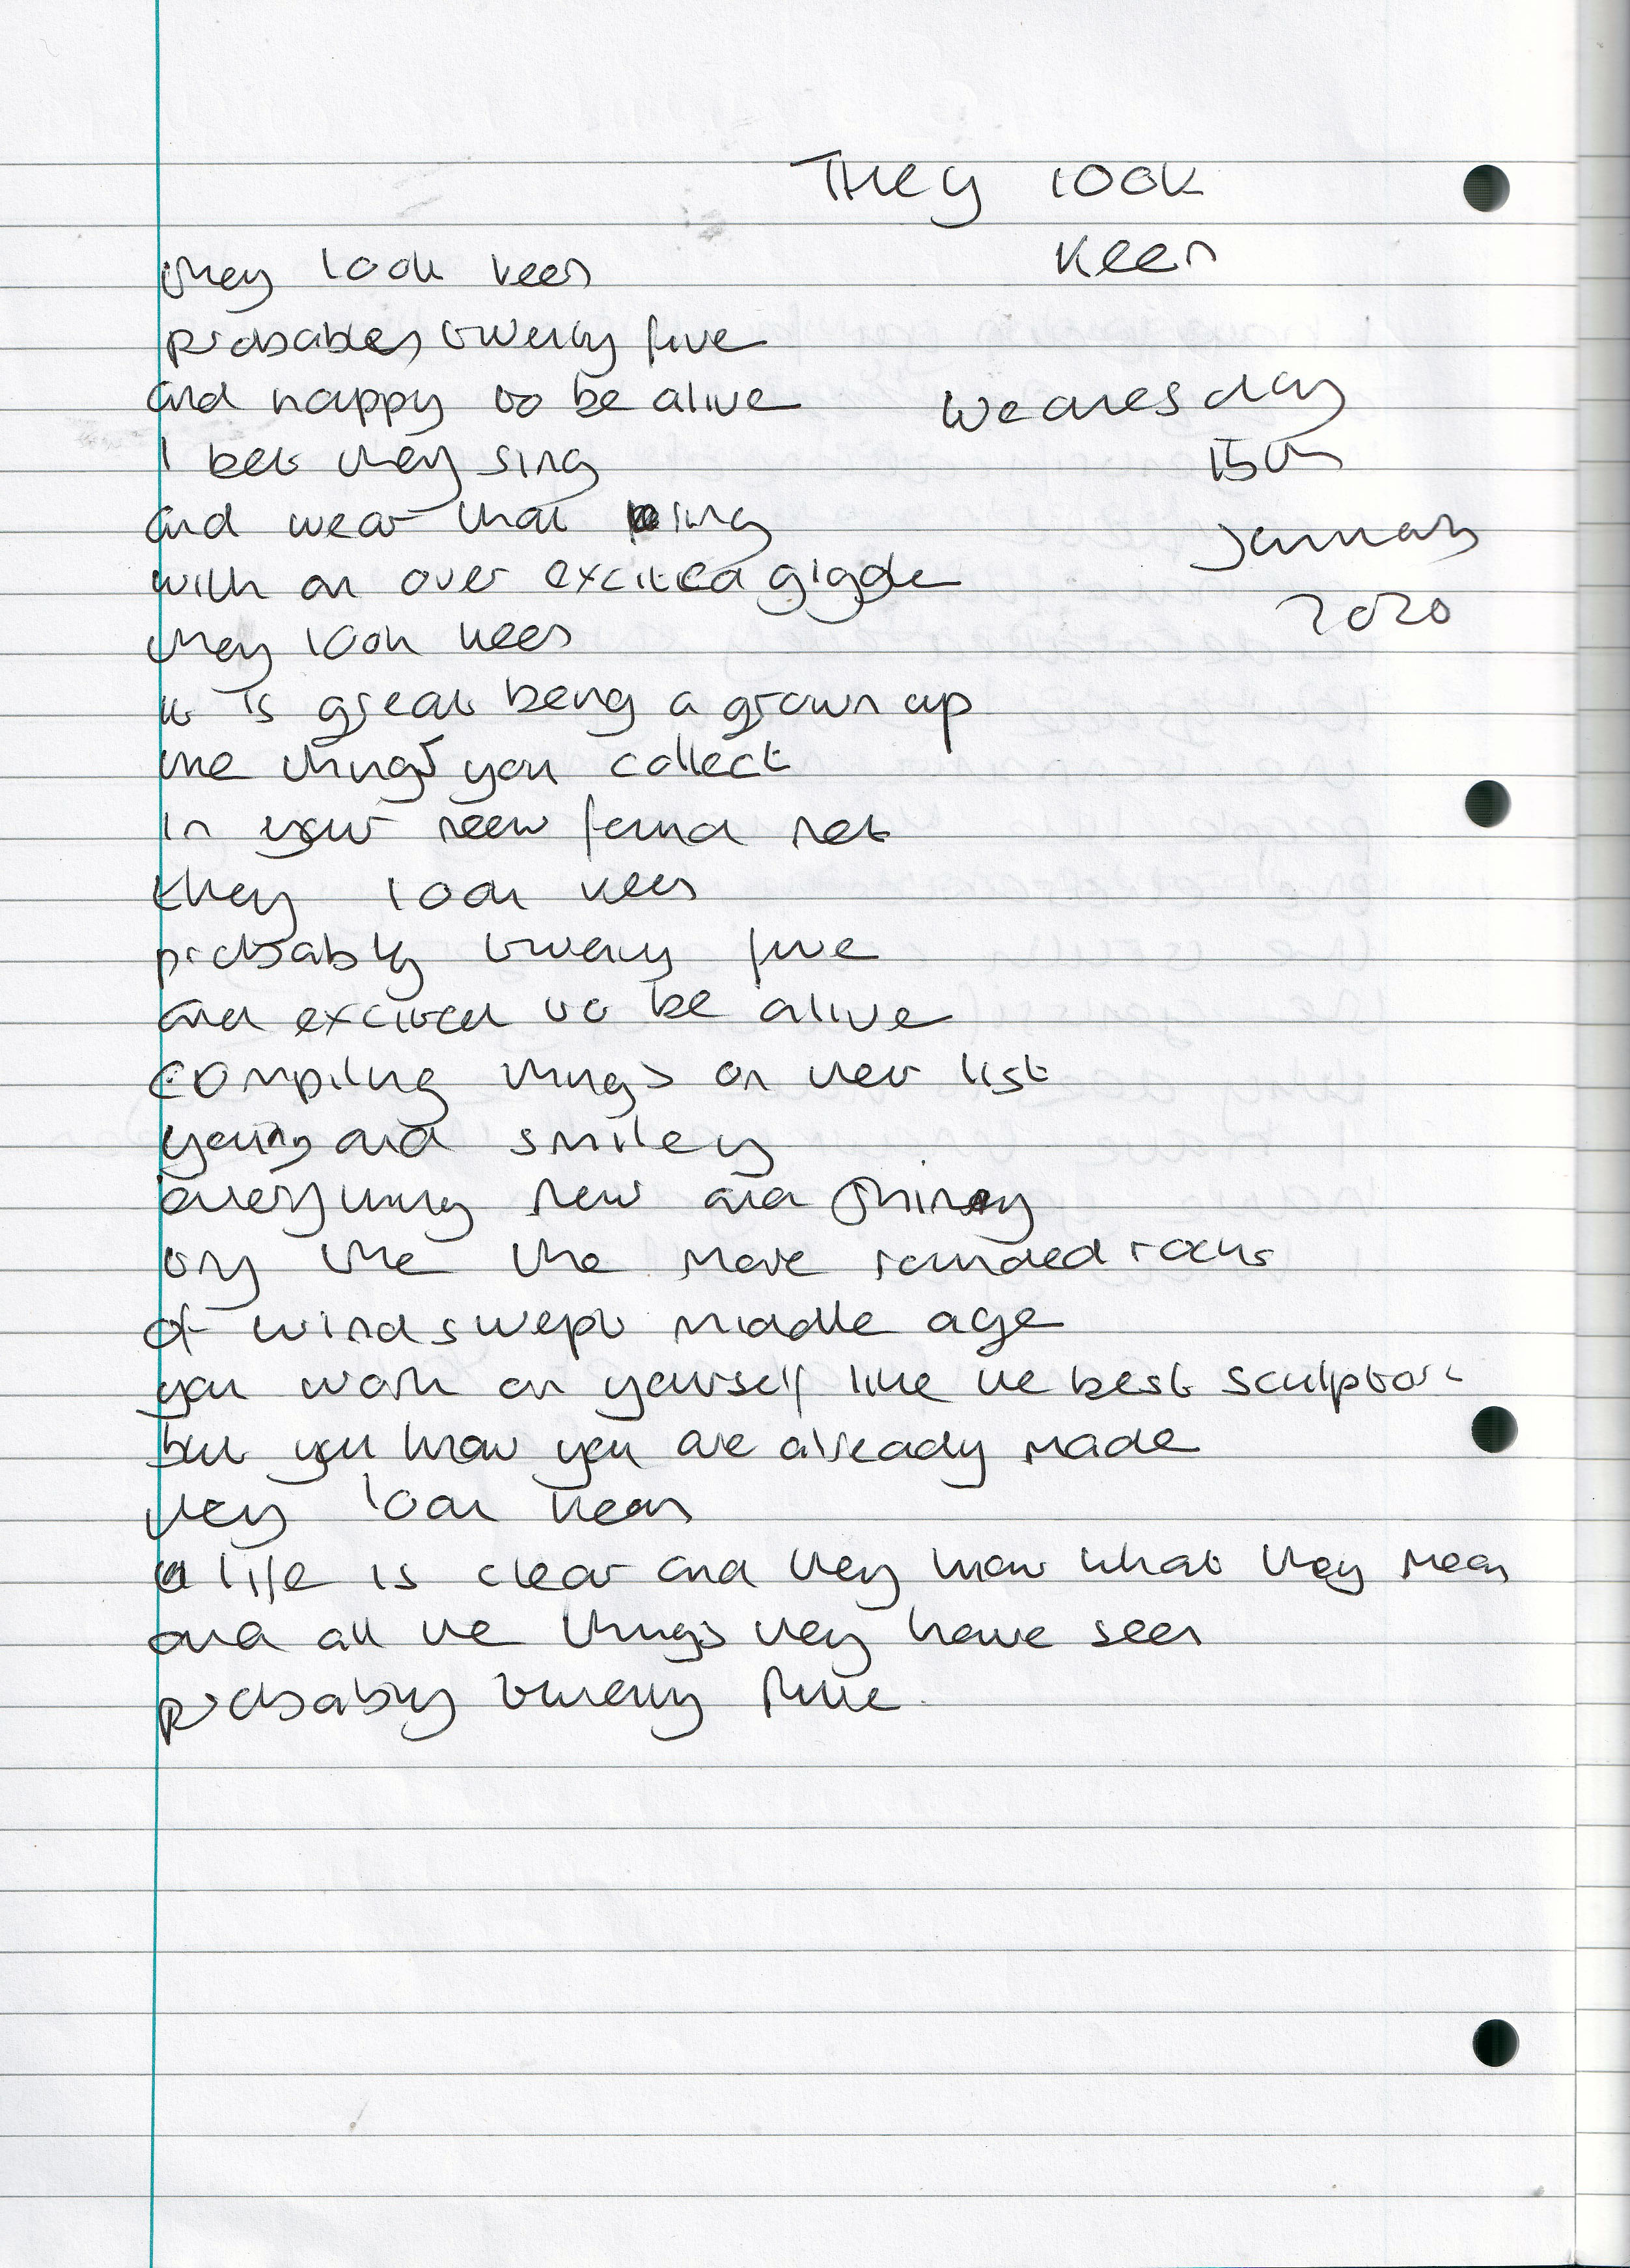 They look
keen
they look keen
probably twenty five
and happy to be alive
Wednesday
15th
January
2020
I bet they sing
and wear that ring
with an over excited giggle
they look keen
it is great being a grown up
the things you collect
in your new found net
they look keen
probably twenty five
and excited to be alive
compiling things on their list
young and smiley
everything new and shiny
try the the more rounded rocks
of windswept middle age
you work on yourself like the best sculptor
but you know you are already made
they look keen
life is clear and they know what they mean
and all the things they have seen
probably twenty five.